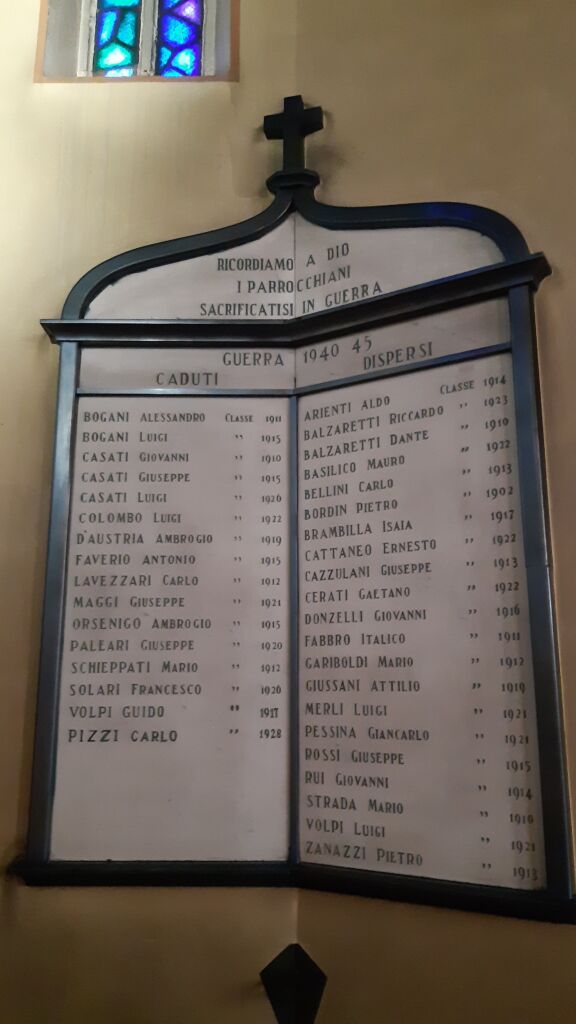 RICORDIAMO A DIO
I PARROCCHIANI
SACRIFICATISI IN GUERRA
GUERRA 1940 45
CADUTI
BOGANI ALESSANDRO CLASSE 1911
BOGANI LUIGI " 1915
CASATI GIOVANNI " 1910
CASATI GIUSEPPE " 1915
CASATI LUIGI " 1920
COLOMBO LUIGI " 1922
D'AUSTRIA AMBROGIO " 1919
FAVERIO ANTONIO " 1915
LAVEZZARI CARLO " 1912
MAGGI GIUSEPPE " 1921
ORSENIGO AMBROGIO " 1915
PALEARI GIUSEPPE " 1920
SCHIEPPATI MARIO " 1912
SOLARI FRANCESCO " 1920
VOLPI GUIDO " 1917
PIZZI CARLO " 1928
DISPERSI
ARIENTI ALDO CLASSE 1914
BALZARETTI RICCARDO " 1923
BALZARETTI DANTE " 1910
BASILICO MAURO " 1922
BELLINI CARLO " 1913
BORDIN PIETRO " 1902
BRAMBILLA ISAIA " 1917
CATTANEO ERNESTO " 1922
CAZZULANI GIUSEPPE " 1913
CERATI GAETANO " 1922
DONZELLI GIOVANNI " 1916
FABBRO ITALICO " 1911
GARIBOLDI MARIO " 1912
GIUSSANI ATTILIO " 1919
MERLI LUIGI " 1921
PESSINA GIANCARLO " 1921
ROSSI GIUSEPPE " 1915
RUI GIOVANNI " 1914
STRADA MARIO " 1910
VOLPI LUIGI " 1921
ZANAZZI PIETRO " 1913